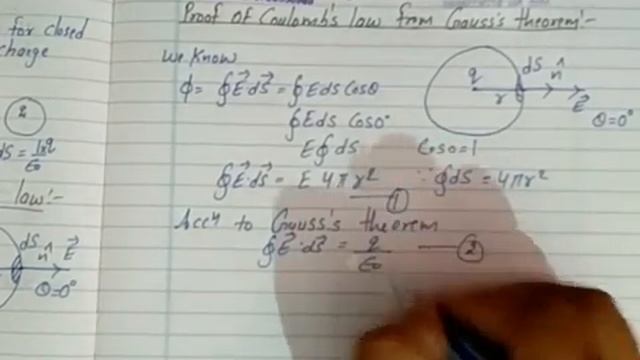 for closed
charge
2
law:-
dS n̂ E⃗
θ=0°
Proof of Coulomb's law from Gauss's theorem:-
We Know
ϕ = ∮E⃗.dS⃗ = ∮EdS Cosθ
∮EdS Cos0°
E∮dS Cos0=1
∮E⃗.dS⃗ = E 4πr² ∵ ∮dS = 4πr²
1
Acc4 to Gauss's theorem
∮E⃗.dS⃗ = q/ε0 — 2
q
r
dS n̂
E⃗
θ=0°